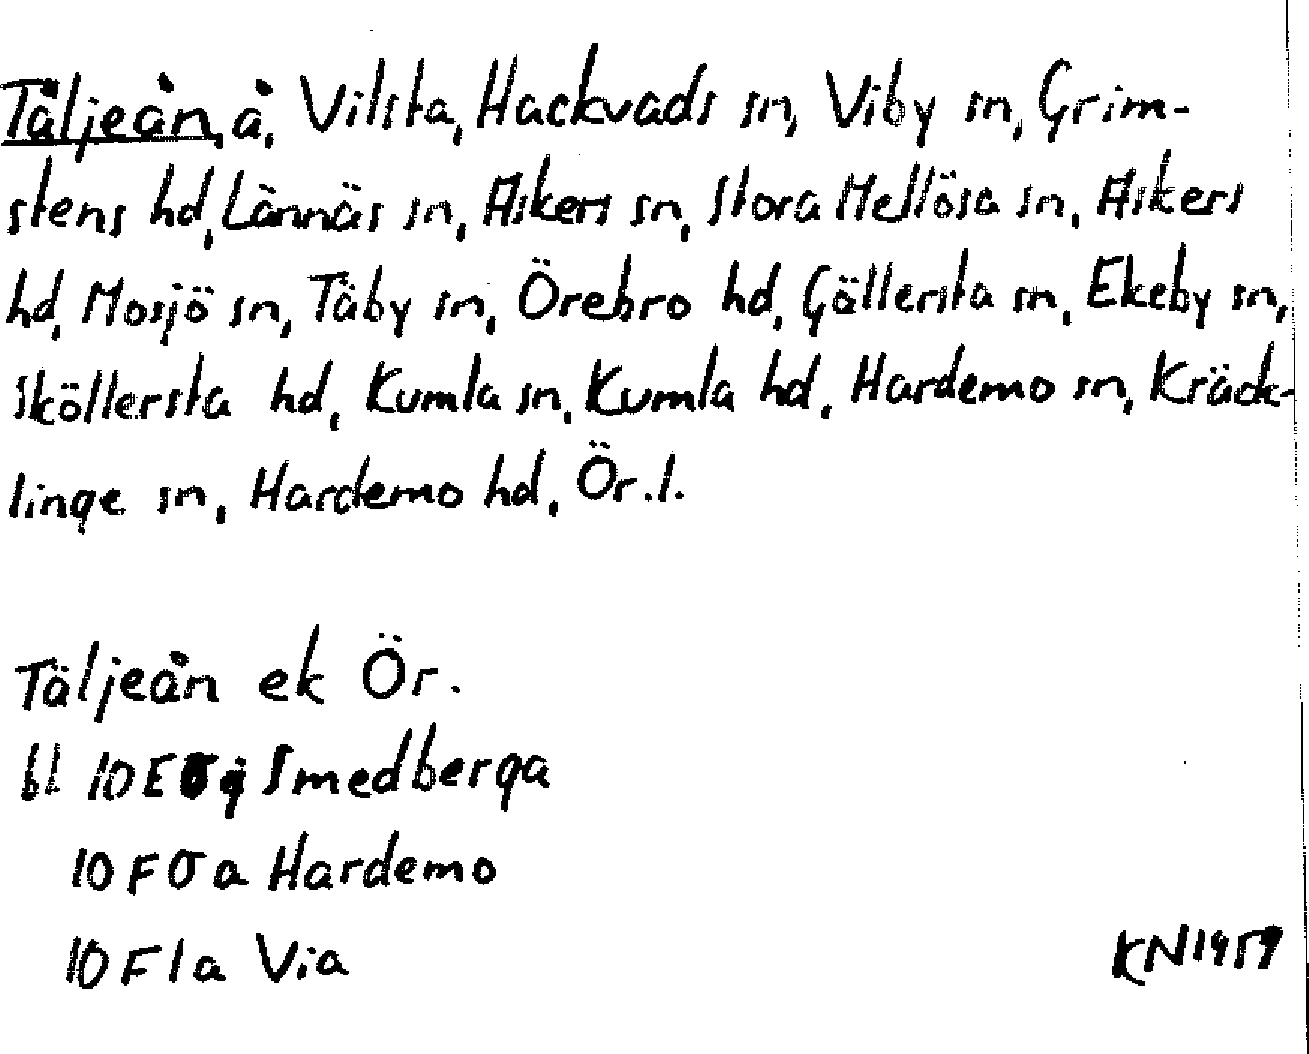 Täljeån, å, Vilsta, Hackvads sn, Viby sn, Grim-
stens hd, Lännäs sn, Askers sn, Stora Mellösa sn, Askers
hd, Mosjö sn, Täby sn, Örebro hd, Gällersta sn, Ekeby sn,
Sköllersta hd, Kumla sn, Kumla hd, Hardemo sn, Kräck-
linge sn, Hardemo hd, Ör.l.
Täljeån ek Ör.
bl 10E 0j Smedberga
10 F 0 a Hardemo
10 F 1 a Via
KN1959